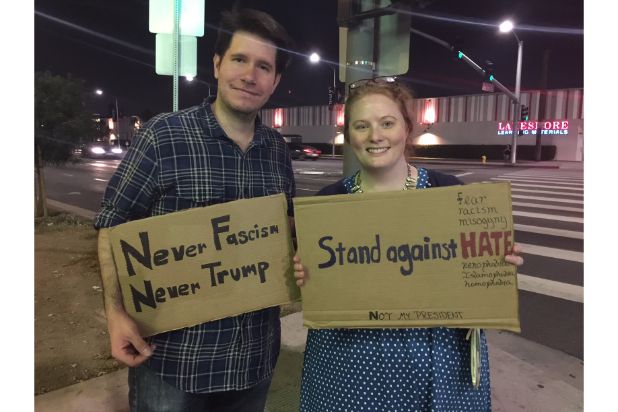 LAKESHORE
LEARNING MATERIALS
Never Fascism
Never Trump
Fear
racism
misogyny
Stand against HATE
xenophobia
Islamophobia
homophobia
NOT MY PRESIDENT